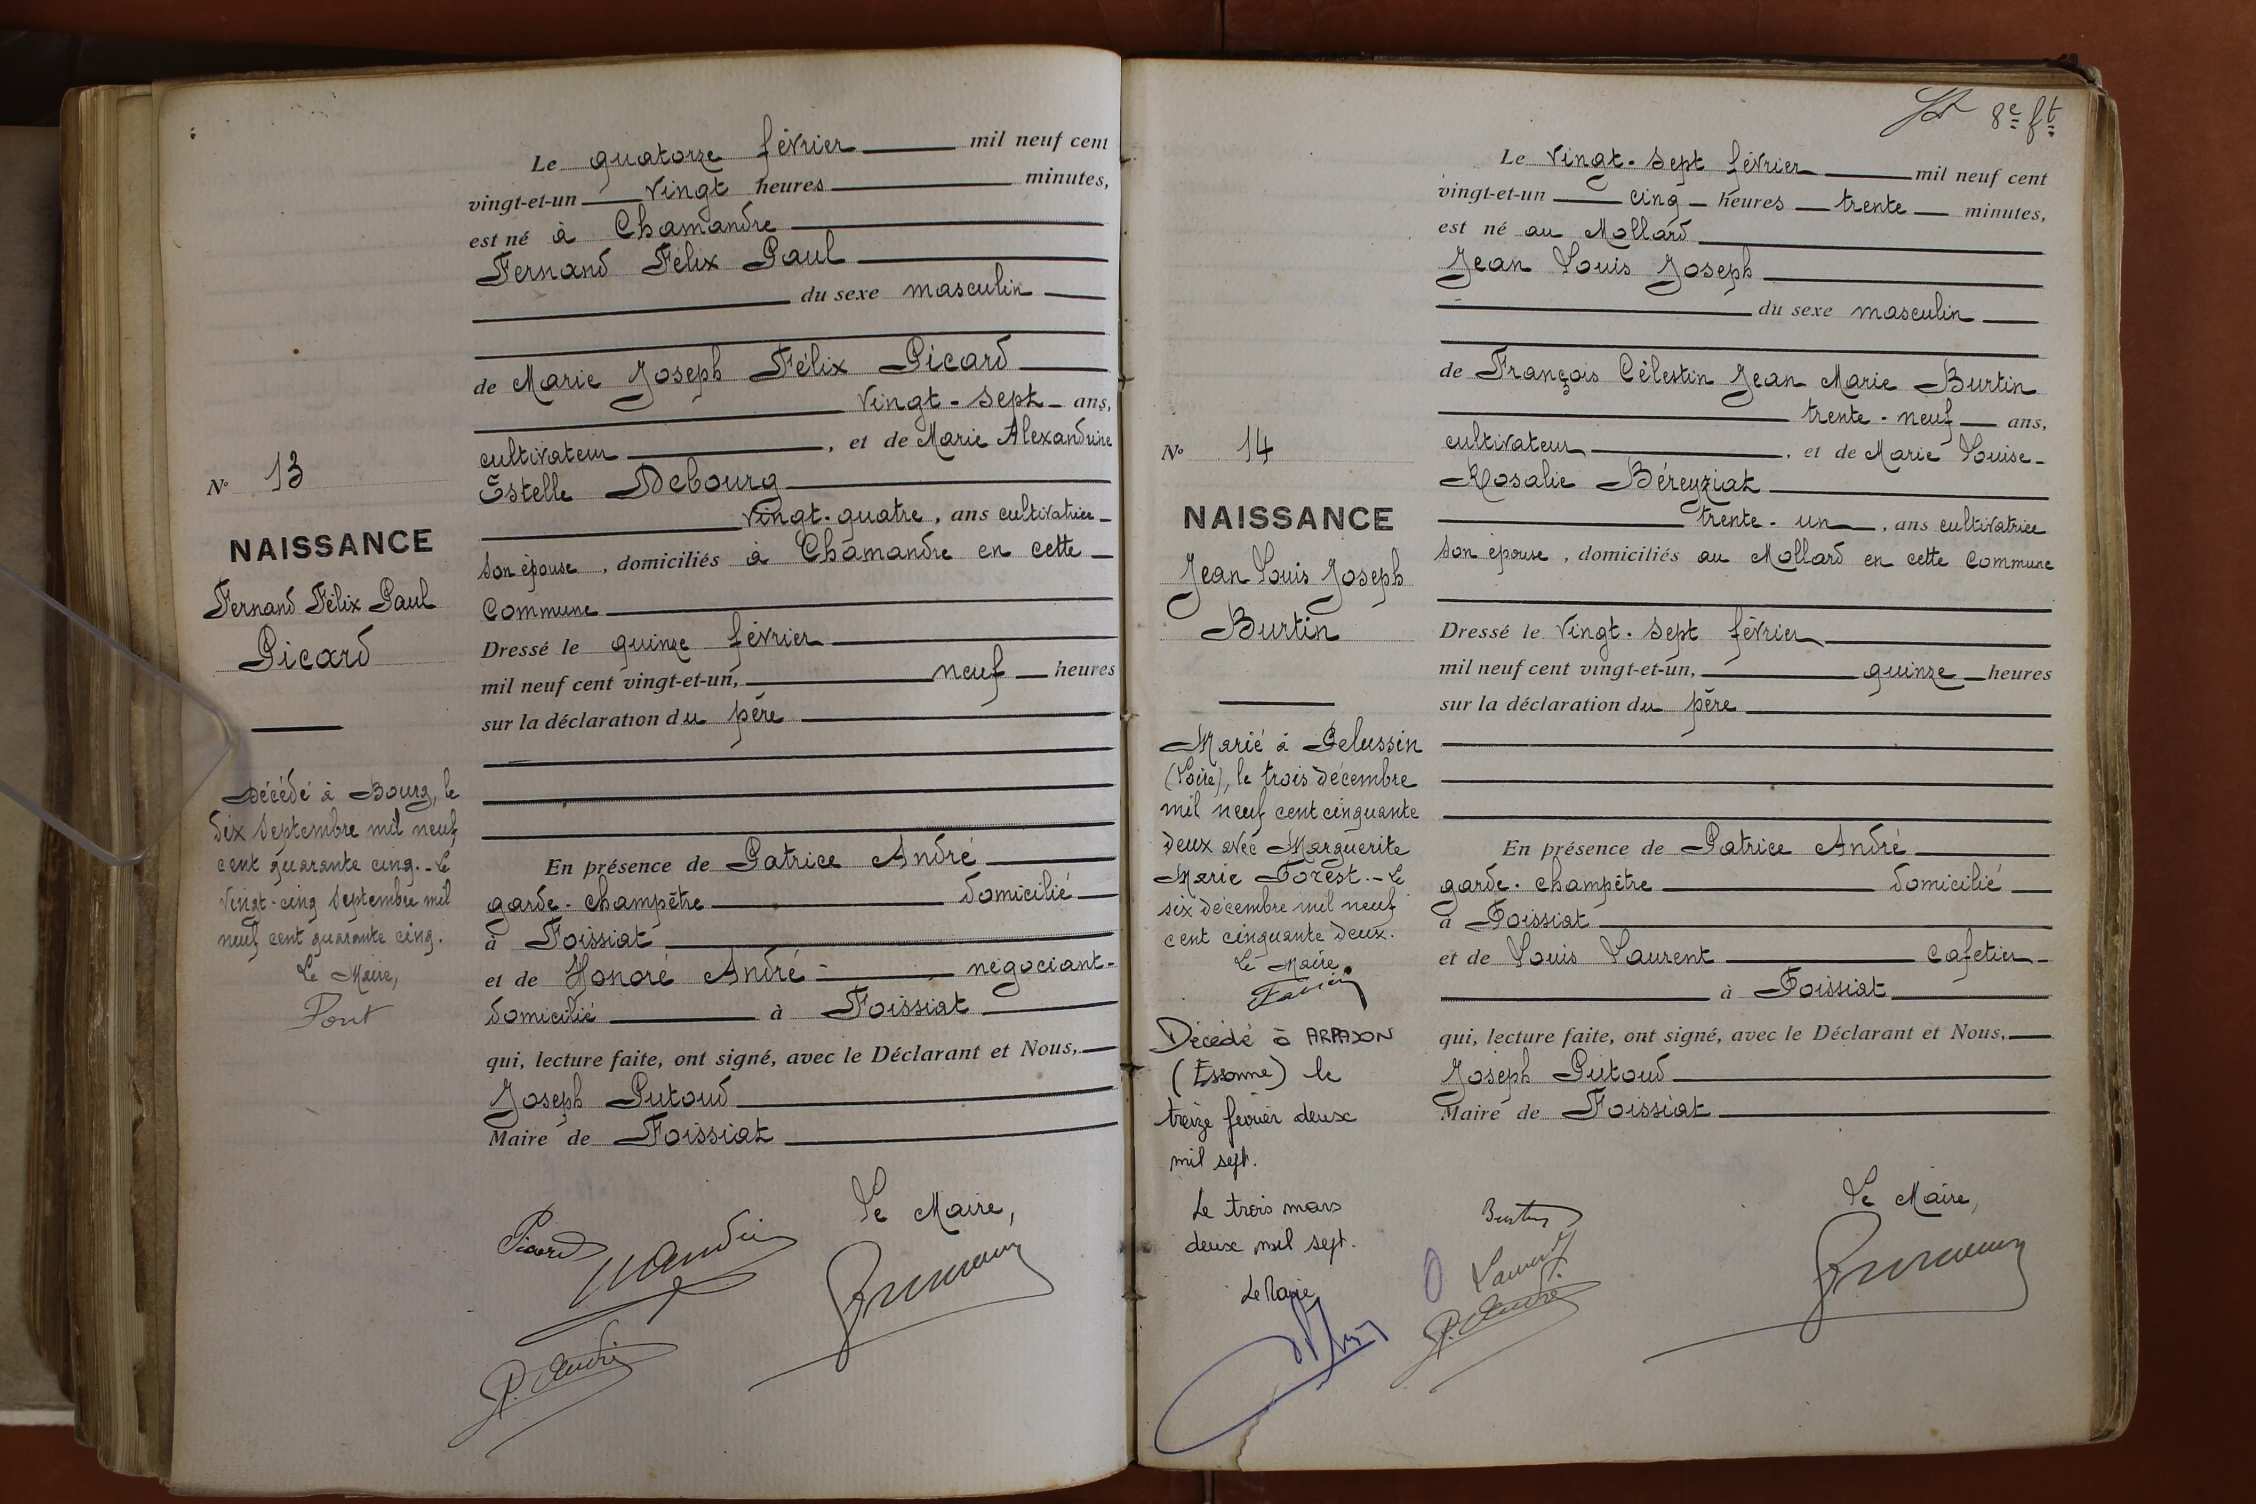 Le quatorze février mil neuf cent
vingt-et-un vingt heures minutes,
est né à Chamandre
Fernand Félix Paul
du sexe masculin
de Marie Joseph Félix Picard
vingt-sept ans,
cultivateur, et de Marie Alexandrine
Estelle Debourg
vingt-quatre, ans cultivatrice
son épouse, domiciliés à Chamandre en cette
Commune
Dressé le quinze février
mil neuf cent vingt-et-un, neuf heures
sur la déclaration du père
En présence de Patrice André
garde-champêtre domicilié
à Foissiat
et de Honoré André négociant
domicilié à Foissiat
qui, lecture faite, ont signé, avec le Déclarant et Nous,
Joseph Putoud
Maire de Foissiat
Le Maire,
Picard
P. André
N° 13
NAISSANCE
Fernand Félix Paul
Picard
Décédé à Bourg, le
dix Septembre mil neuf
cent quarante cinq. - Le
vingt-cinq Septembre mil
neuf cent quarante cinq.
Le Maire,
Pont
8e ft
Le vingt-sept février mil neuf cent
vingt-et-un cinq heures trente minutes,
est né au Mollard
Jean Louis Joseph
du sexe masculin
de François Célestin Jean Marie Burtin
trente-neuf ans,
cultivateur, et de Marie Louise
Rosalie Béreyziat
trente-un, ans cultivatrice
son épouse, domiciliés au Mollard en cette Commune
Dressé le vingt-sept février
mil neuf cent vingt-et-un, quinze heures
sur la déclaration du père
En présence de Patrice André
garde-champêtre domicilié
à Foissiat
et de Louis Laurent cafetier
à Foissiat
qui, lecture faite, ont signé, avec le Déclarant et Nous,
Joseph Putoud
Maire de Foissiat
Le Maire,
Burtin
Laurent
P. André
N° 14
NAISSANCE
Jean Louis Joseph
Burtin
Marié à Pelussin
(Loire), le trois décembre
mil neuf cent cinquante
deux avec Marguerite
Marie Forest. - Le
six décembre mil neuf
cent cinquante deux.
Le Maire
Décédé à ARPAJON
(Essonne) le
treize février deux
mil sept.
Le trois mars
deux mil sept.
Le Maire